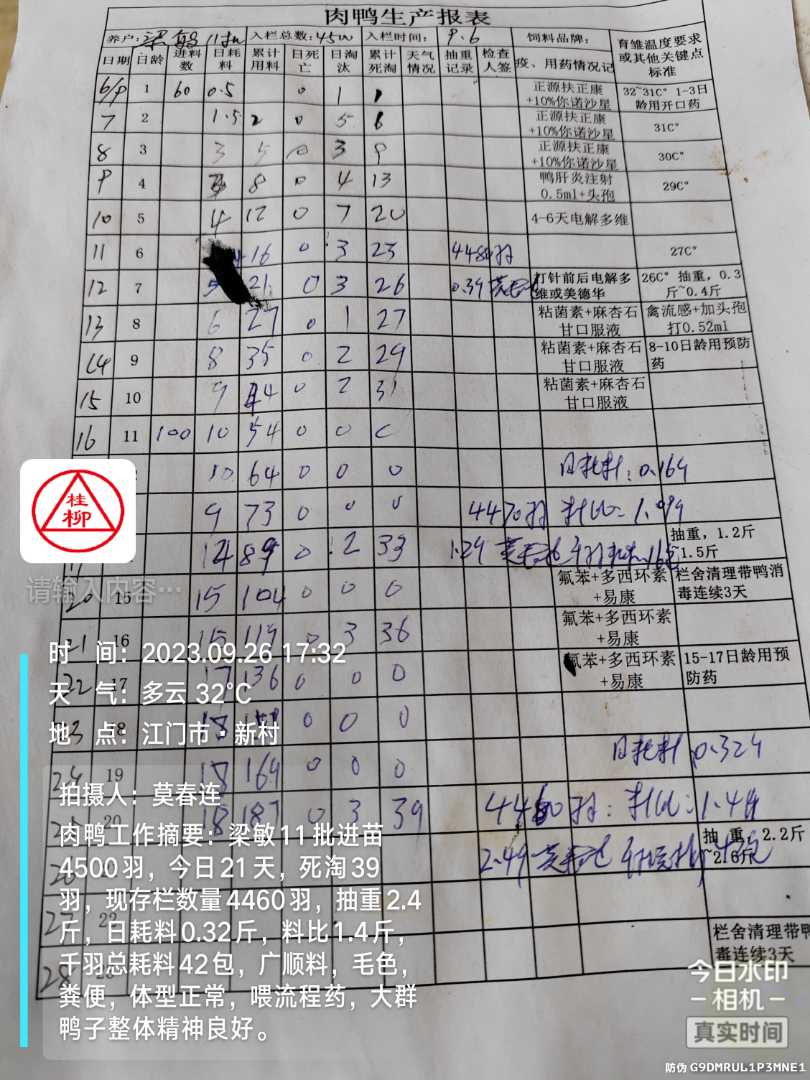 肉鸭生产报表
养户: 梁敏11批 入栏总数: 4500 入栏时间: 9.6 饲料品牌: 育雏温度要求或其他关键点标准
日期 日龄 进料数 日耗料 累计用料 日死亡 日淘汰 累计死淘 天气情况 抽重记录 检查人签 疫、用药情况记
6/9 1 60 0.5 0 1 1 正源扶正康+10%你诺沙星 32~31C° 1-3日龄用开口药
7 2 1.5 2 0 5 6 正源扶正康+10%你诺沙星 31C°
8 3 3 5 0 3 9 正源扶正康+10%你诺沙星 30C°
9 4 3 8 0 4 13 鸭肝炎注射0.5ml+头孢 29C°
10 5 4 12 0 7 20 4-6天电解多维
11 6 4 16 0 3 23 4480羽 27C°
12 7 5 21 0 3 26 打针前后电解多维或美德华 26C° 抽重，0.3斤~0.4斤
13 8 6 27 0 1 27 粘菌素+麻杏石甘口服液 禽流感+加头孢打0.52ml
14 9 8 35 0 2 29 粘菌素+麻杏石甘口服液 8-10日龄用预防药
15 10 9 44 0 2 31 粘菌素+麻杏石甘口服液
16 11 100 10 54 0 0 0
10 64 0 0 0 日耗料: 0.164
9 73 0 0 0 4470羽 料比=
89 0 2 33 抽重，1.2斤
1.5斤
20 15 15 104 0 0 0 氟苯+多西环素+易康 栏舍清理带鸭消毒连续3天
21 16 15 119 0 3 36 氟苯+多西环素+易康
22 17 17 136 0 0 0 氟苯+多西环素+易康 15-17日龄用预防药
18 18 0 0 0
24 19 18 169 0 0 0 日耗料 0.324
20 18 187 0 3 39 4460羽: 料比: 1.4
抽 重，2.2斤
~2.6斤
27 22
28 栏舍清理带鸭
毒连续3天
桂柳
请输入内容…
时 间: 2023.09.26 17:32
天 气: 多云 32℃
地 点: 江门市·新村
拍摄人: 莫春连
肉鸭工作摘要: 梁敏11批进苗
4500羽，今日21天，死淘39
羽，现存栏数量4460羽，抽重2.4
斤，日耗料0.32斤，料比1.4斤，
千羽总耗料42包，广顺料，毛色，
粪便，体型正常，喂流程药，大群
鸭子整体精神良好。
今日水印
相机
真实时间
防伪 G9DMRUL1P3MNE1